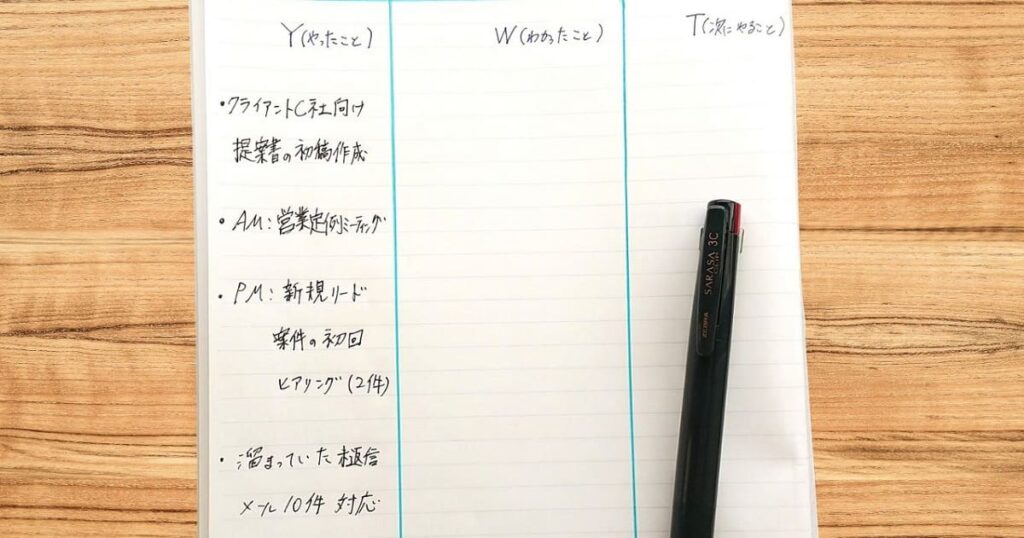 Y(やったこと)
W(わかったこと)
T(次にやること)
・クライアントC社向け
提案書の初稿作成
・AM:営業定例ミーティング
・PM:新規リード
案件の初回
ヒアリング(2件)
・溜まっていた返信
メール10件対応
SARASA 3C
ZEBRA